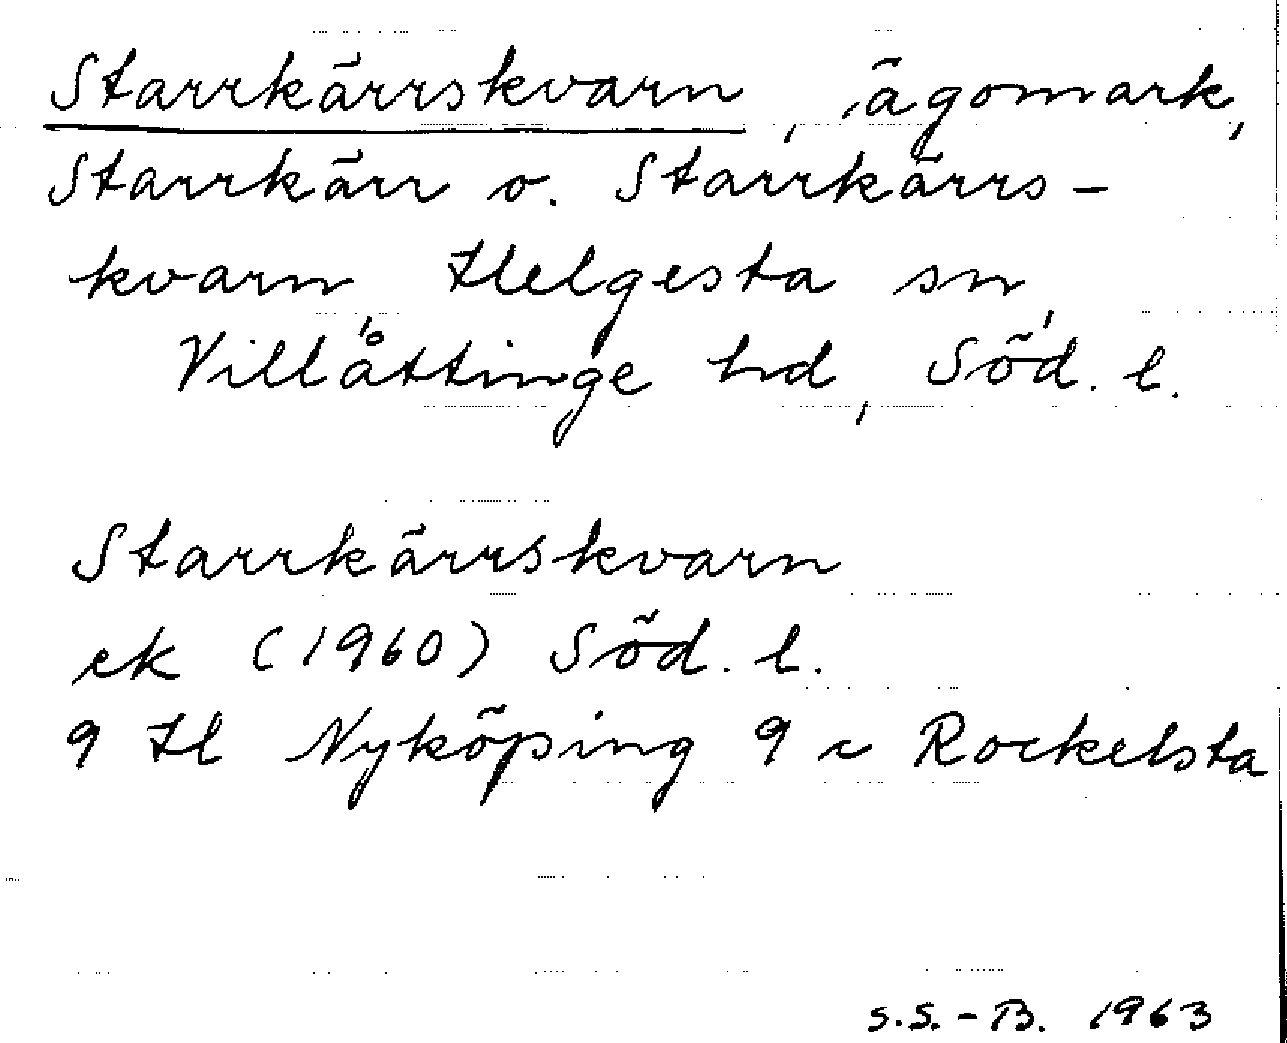 Starrkärrskvarn, ägomark,
Starrkärr o. Starrkärrs-
kvarn, Helgesta sn,
Villåttinge hd, Söd. l.
Starrkärrskvarn
ek (1960) Söd. l.
9 H Nyköping 9 c Rockelsta
S.S.-B. 1963